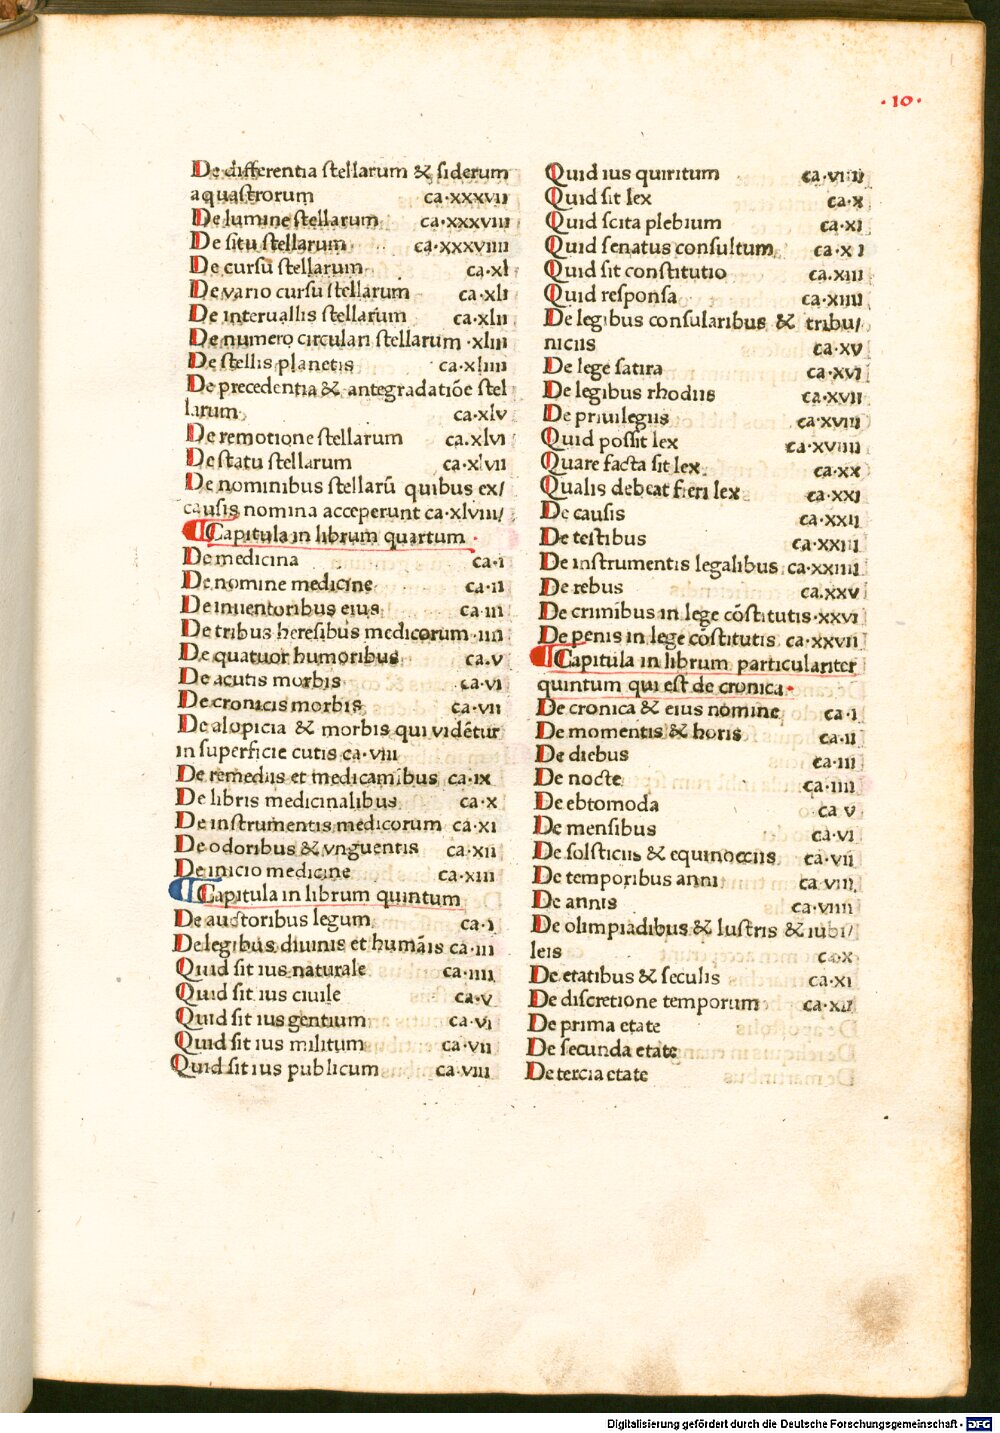 ·10·
De differentia ſtellarum & ſiderum
aquaſtrorum ca·xxxvii
De lumine ſtellarum ca·xxxviii
De ſitu ſtellarum ca·xxxviiii
De curſu ſtellarum ca·xl
De vario curſu ſtellarum ca·xli
De interuallis ſtellarum ca·xlii
De numero circulari ſtellarum ·xliii
De ſtellis planetis ca·xliiii
De precedentia & antegradatiōe ſtel
larum ca·xlv
De remotione ſtellarum ca.xlvi
De ſtatu ſtellarum ca·xlvii
De nominibus ſtellarū quibus ex/
cauſis nomina acceperunt ca·xlviii/
Capitula in librum quartum ·
De medicina ca·i
De nomine medicine ca·ii
De inuentoribus eius ca·iii
De tribus hereſibus medicorum ·iiii
De quatuor humoribus ca.v
De acutis morbis ca·vi
De cronicis morbis ca·vii
De alopicia & morbis qui vidētur
in ſuperficie cutis ca·viii
De remediis et medicamibus ca·ix
De libris medicinalibus ca·x
De inſtrumentis medicorum ca·xi
De odoribus & vnguentis ca·xii
De inicio medicine ca·xiii
Capitula in librum quintum
De auctoribus legum ca·i
De legibus diuinis et humāis ca·iii
Quid ſit ius naturale ca·iiii
Quid ſit ius ciuile ca·v
Quid ſit ius gentium ca·vi
Quid ſit ius militum ca·vii
Quid ſit ius publicum ca·viii
Quid ius quiritum ca·viiii
Quid ſit lex ca·x
Quid ſcita plebium ca·xi
Quid ſenatus conſultum ca·xi
Quid ſit conſtitutio ca.xiii
Quid reſponſa ca·xiiii
De legibus conſularibus & tribu/
niciis ca·xv
De lege ſatira ca·xvi
De legibus rhodiis ca·xvii
De priuilegiis ca·xviii
Quid poſſit lex ca·xviiii
Quare facta ſit lex. ca·xx
Qualis debeat fieri lex ca·xxi
De cauſis ca·xxii
De teſtibus ca·xxiii
De inſtrumentis legalibus ca·xxiiii
De rebus ca.xxv
De crimibus in lege cōſtitutis·xxvi
De penis in lege cōſtitutis ca·xxvii
Capitula in librum particulariter
quintum qui eſt de cronica·
De cronica & eius nomine ca·i
De momentis & horis ca·ii
De diebus ca·iii
De nocte ca·iiii
De ebtomoda ca v
De menſibus ca·vi
De ſolſticiis & equinoctiis ca·vii
De temporibus anni ca·viii
De annis ca·viiii
De olimpiadibus & luſtris & iubi/
leis ca·x
De etatibus & ſeculis ca·xi
De diſcretione temporum ca·xii
De prima etate
De ſecunda etate
De tercia etate
Digitalisierung gefördert durch die Deutsche Forschungsgemeinschaft - DFG